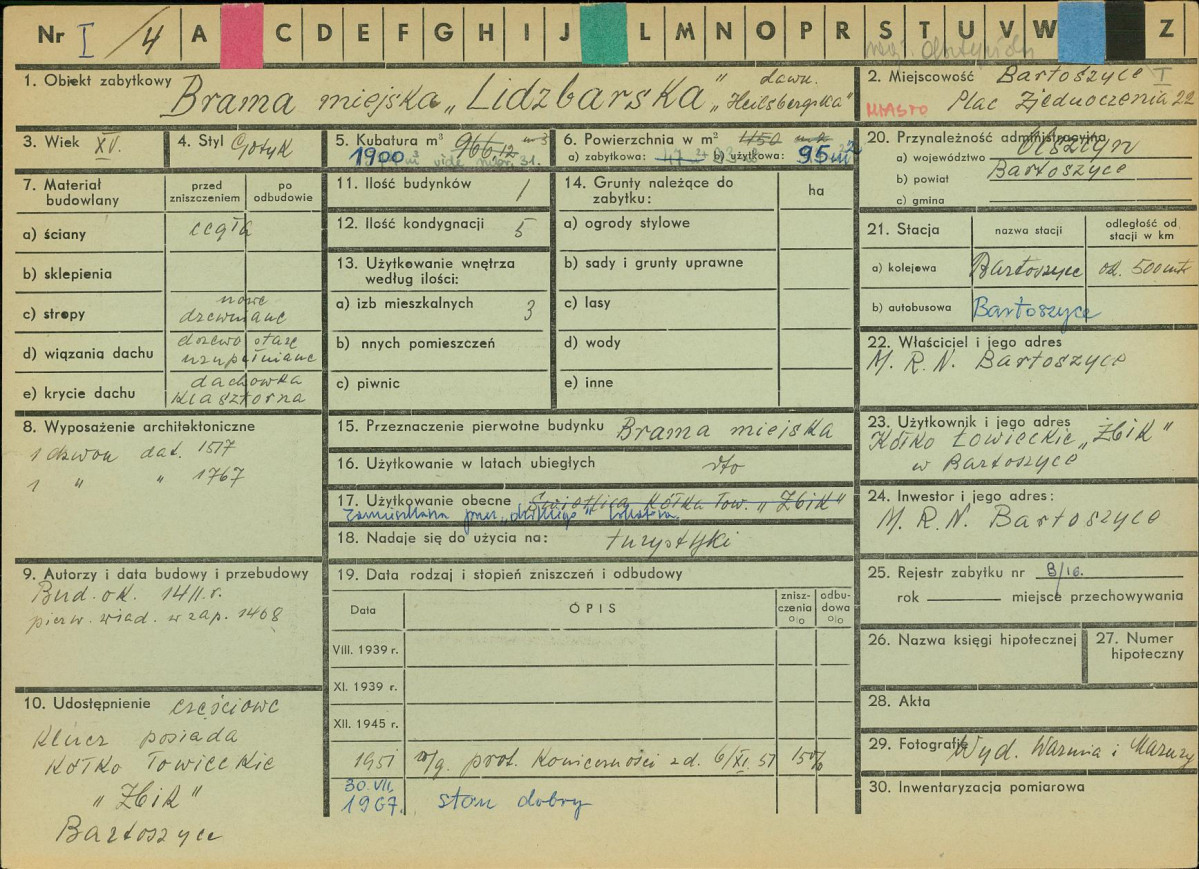 Nr I/4 A C D E F G H I J L M N O P R S T U V W Z
1. Obiekt zabytkowy Brama miejska „Lidzbarska” dawn. „Heilsbergska”
2. Miejscowość Bartoszyce I
MIASTO Plac Zjednoczenia 22
3. Wiek XV.
4. Styl Gotyk
5. Kubatura m³ 966,12 m3
1900 m³
6. Powierzchnia w m²
a) zabytkowa: b) użytkowa: 95 m²
20. Przynależność administracyjna
a) województwo Olsztyn
b) powiat Bartoszyce
c) gmina
7. Materiał budowlany
przed zniszczeniem
po odbudowie
a) ściany cegła
b) sklepienia
c) stropy nowe drewniane
d) wiązania dachu drzewo stare uzupełniane
e) krycie dachu dachówka klasztorna
11. Ilość budynków 1
12. Ilość kondygnacji 5
13. Użytkowanie wnętrza według ilości:
a) izb mieszkalnych 3
b) nnych pomieszczeń
c) piwnic
14. Grunty należące do zabytku:
ha
a) ogrody stylowe
b) sady i grunty uprawne
c) lasy
d) wody
e) inne
21. Stacja
nazwa stacji
odległość od stacji w km
a) kolejowa Bartoszyce od. 500 mtr
b) autobusowa Bartoszyce
22. Właściciel i jego adres
M. R. N. Bartoszyce
8. Wyposażenie architektoniczne
1 dzwon dat. 1517
1 " " 1767
15. Przeznaczenie pierwotne budynku Brama miejska
16. Użytkowanie w latach ubiegłych dto
17. Użytkowanie obecne Świetlica Kółka Łow. „Żbik”
18. Nadaje się do użycia na: turystyki
23. Użytkownik i jego adres
Kółko Łowieckie „Żbik”
w Bartoszyce
24. Inwestor i jego adres:
M. R. N. Bartoszyce
9. Autorzy i data budowy i przebudowy
Bud. ok. 14II.r.
pierw. wiad. w zap. 1468
19. Data rodzaj i stopień zniszczeń i odbudowy
Data
OPIS
znisz- czenia o|o
odbu- dowa o|o
VIII. 1939 r.
XI. 1939 r.
XII. 1945 r.
1951 w/g. prot. Konieczności z d. 6/XI.51 15%
30.VII. 1967. stan dobry
25. Rejestr zabytku nr B/16.
rok miejsce przechowywania
26. Nazwa księgi hipotecznej
27. Numer hipoteczny
28. Akta
29. Fotografie Wyd. Warmia i Mazury
30. Inwentaryzacja pomiarowa
10. Udostępnienie częściowe
Klucz posiada
Kółko Łowieckie
„Żbik”
Bartoszyce